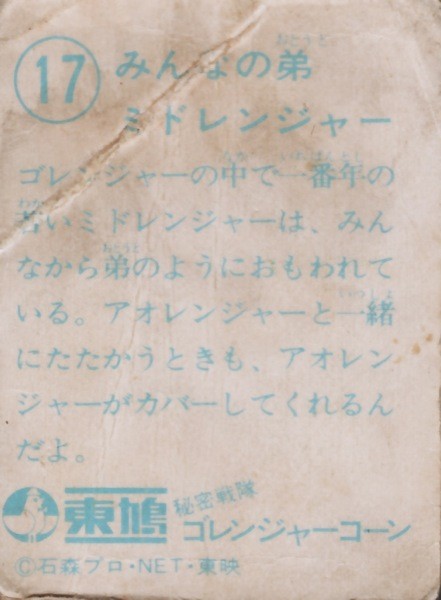 17
みんなの弟
ミドレンジャー
ゴレンジャーの中で一番年の
若いミドレンジャーは、みん
なから弟のようにおもわれて
いる。アオレンジャーと一緒
にたたかうときも、アオレン
ジャーがカバーしてくれるん
だよ。
東鳩 秘密戦隊
ゴレンジャーコーン
©石森プロ・NET・東映